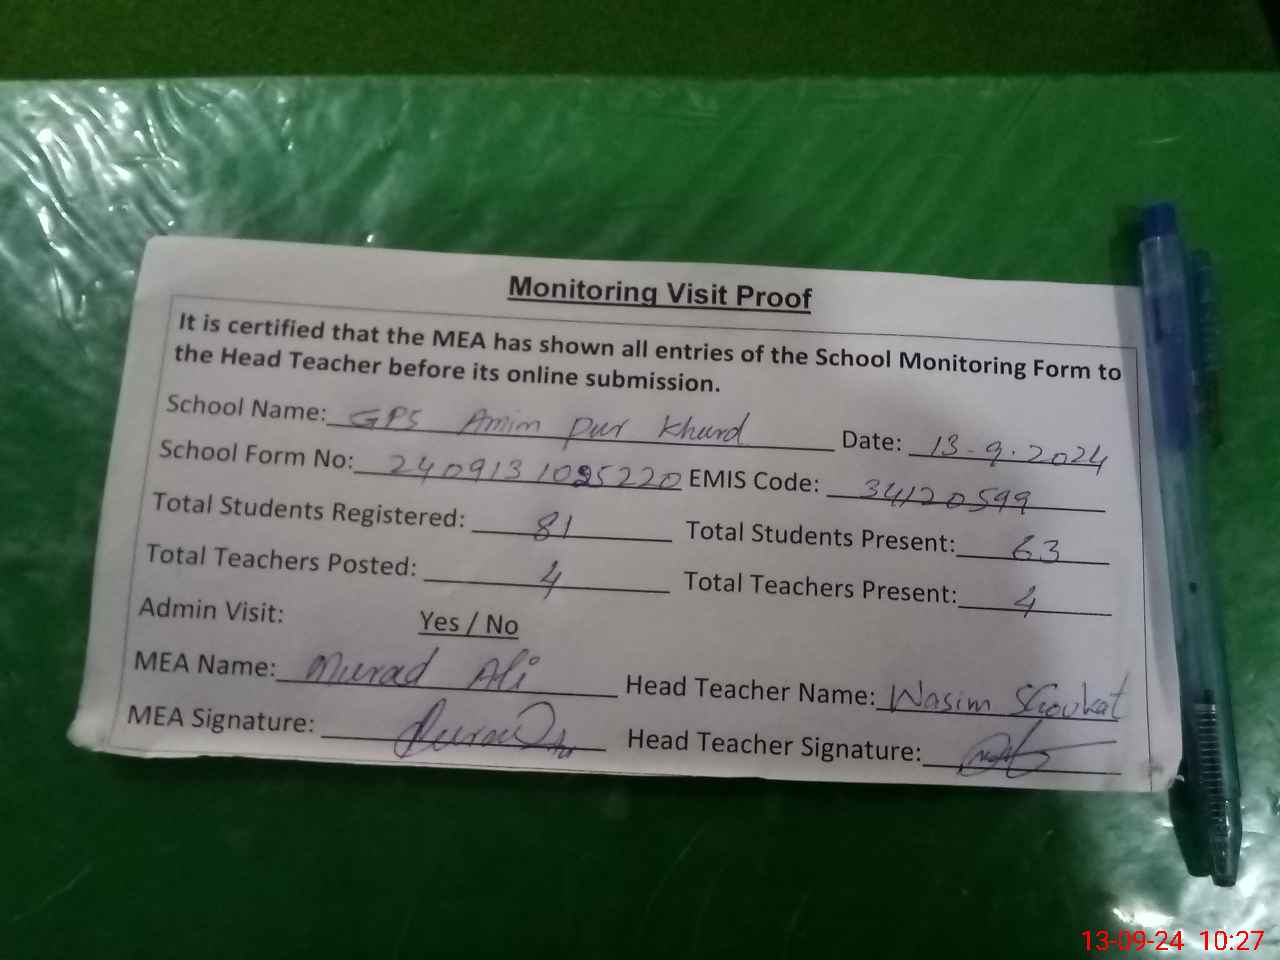 Monitoring Visit Proof
It is certified that the MEA has shown all entries of the School Monitoring Form to
the Head Teacher before its online submission.
School Name: GPS Amim pur Khurd Date: 13-9.2024
School Form No: 2409131025220 EMIS Code: 34120599
Total Students Registered: 81 Total Students Present: 63
Total Teachers Posted: 4 Total Teachers Present: 4
Admin Visit: Yes / No
MEA Name: Murad Ali Head Teacher Name: Wasim Shoukat
MEA Signature: Head Teacher Signature:
13-09-24 10:27